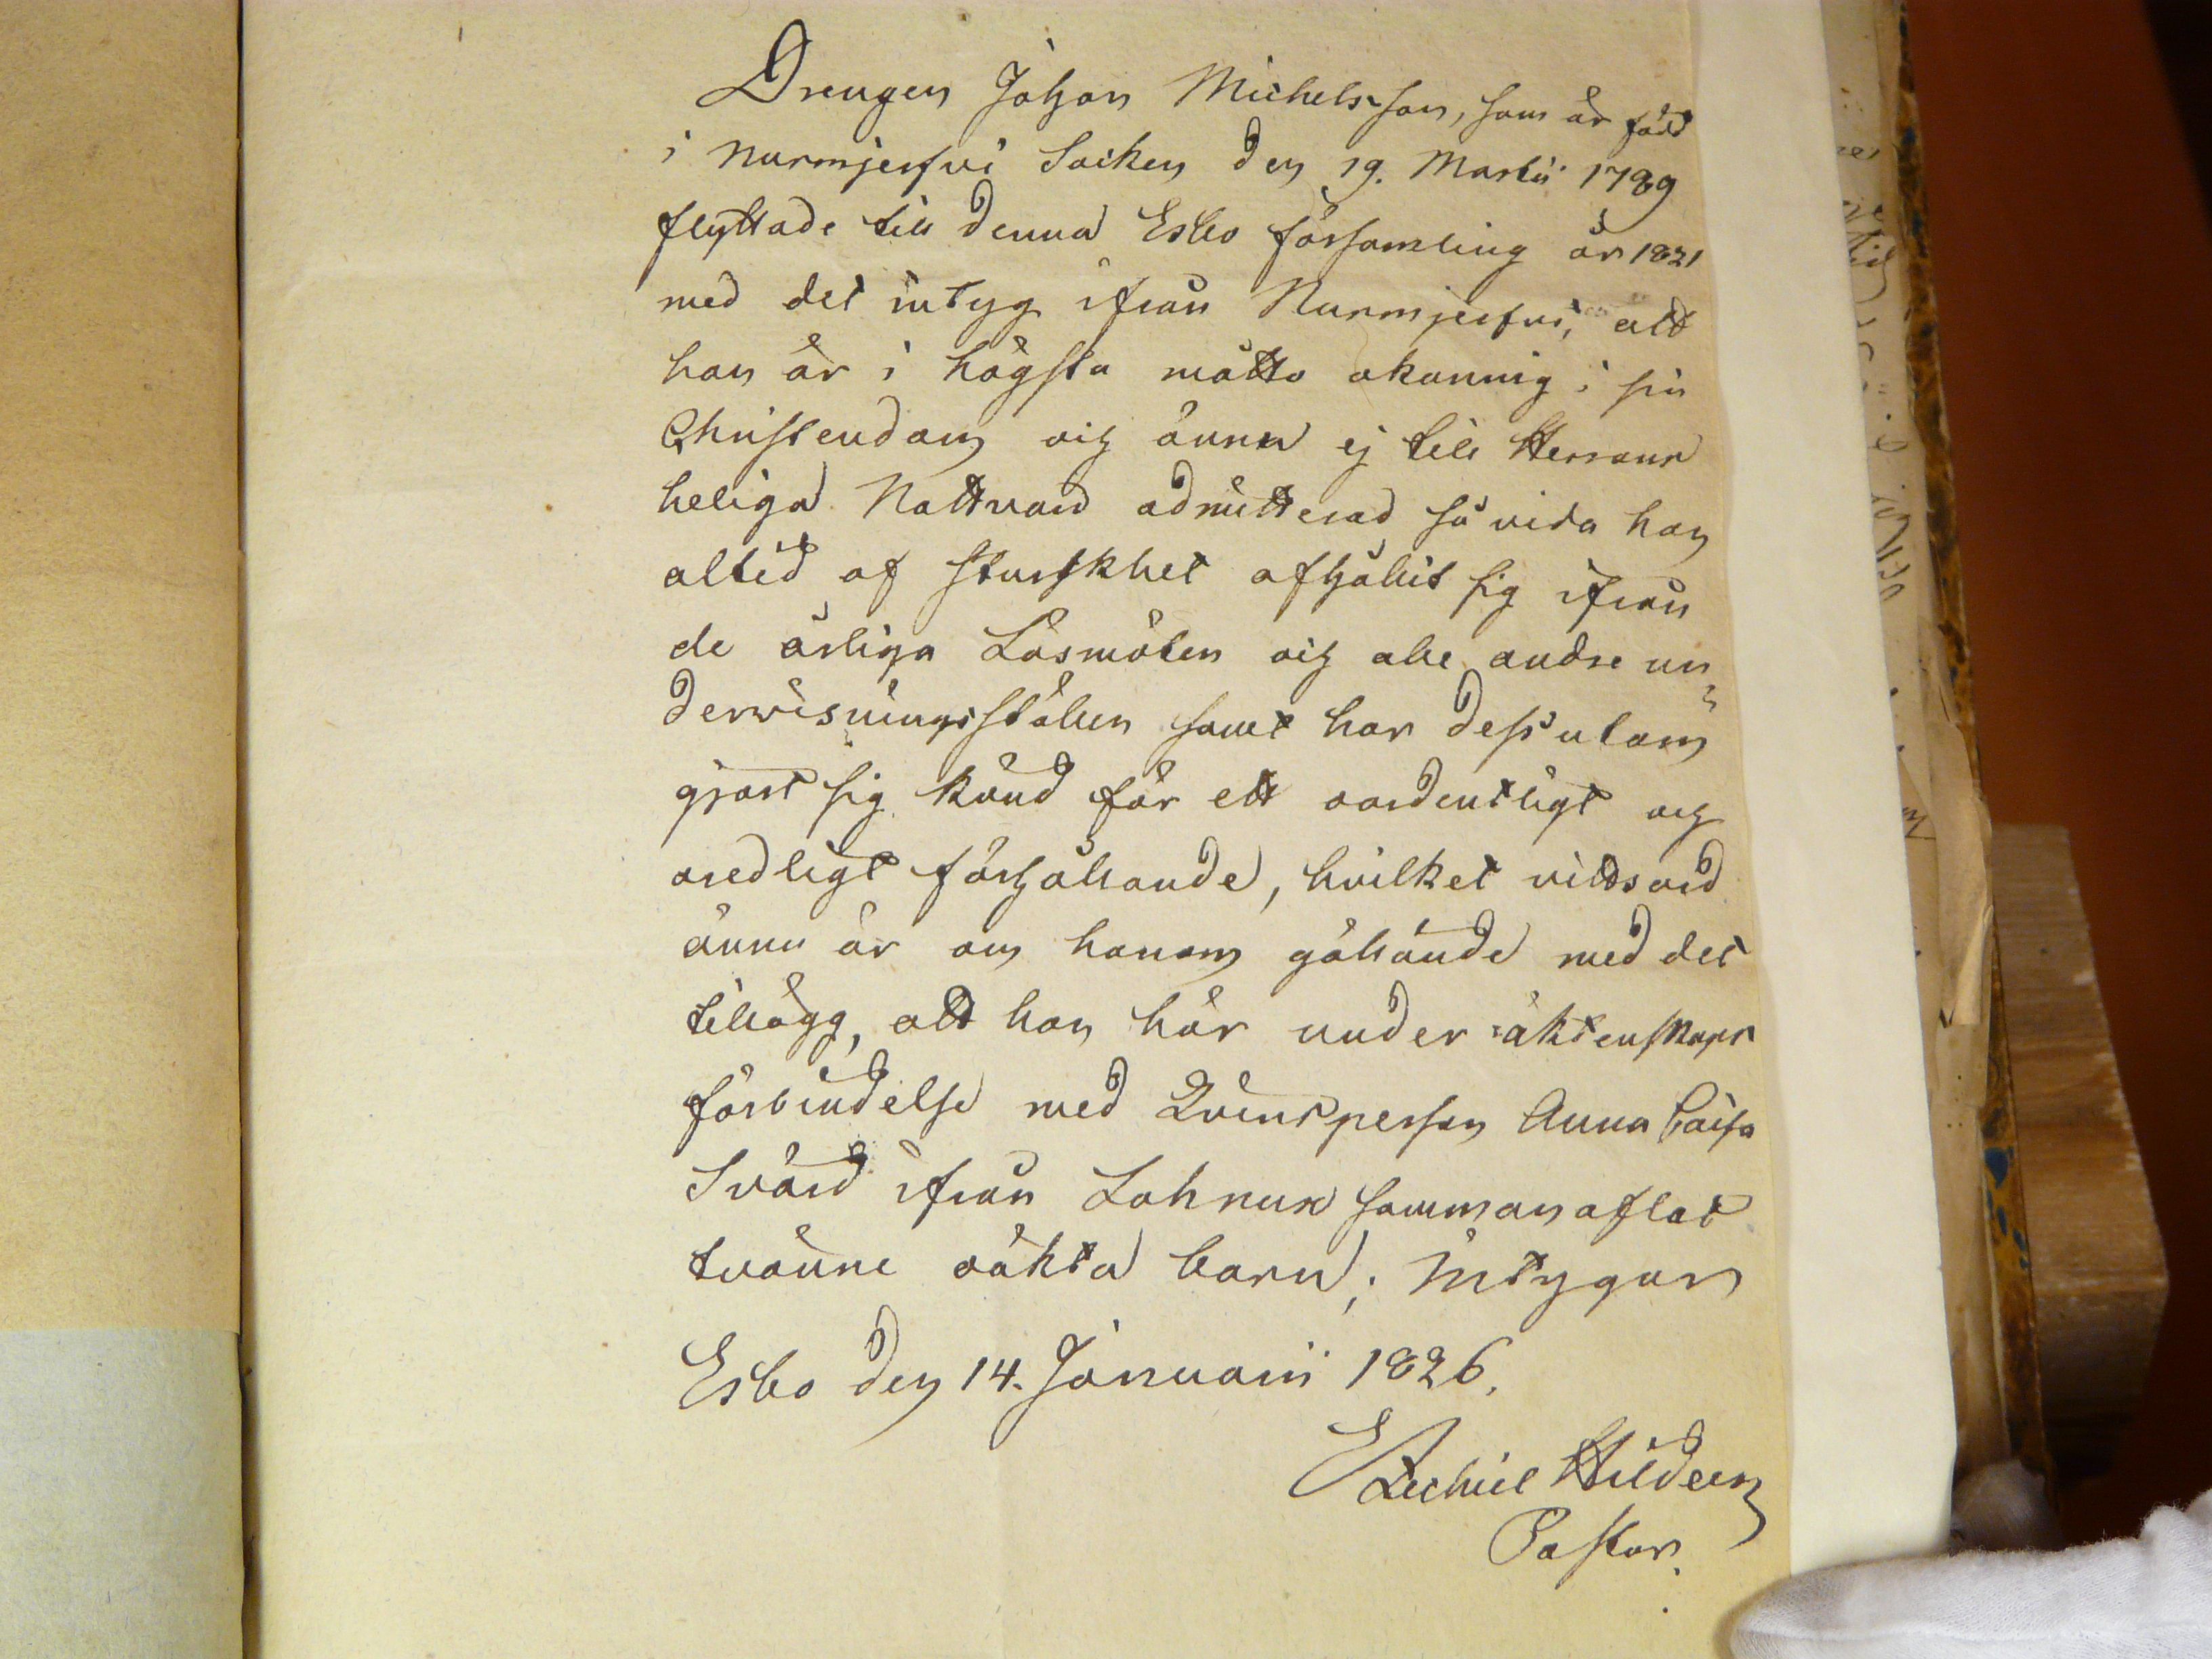 Drengen Johan Michels-son, som är född
i Nurmjerfvi Socken den 19. Martii 1789
flyttade till denna Esbo församling år 1821
med det intyg ifrån Nurmjerfvi, att
han är i högsta måtto okunnig i sin
Christendom och ännu ej till Herrans
heliga Nattvard admitterad så vida han
altid af sturskhet afhållit sig ifrån
de årliga Läsmöten och alla andre un-
derwisningsställen samt har dess utom
gjort sig känd för ett oordentligt och
oredligt förhållande, hvilket vittsord
ännu är om honom gällande med det
tillägg, att han här under äktenskaps
förbindelse med Qvinspersn Anna Caisa
Svärd ifrån Lahnus sammanaflat
tvänne oäkta barn; Intygar
Esbo den 14. Januarii 1826.
Ezechiel Hildeen
Pastor.